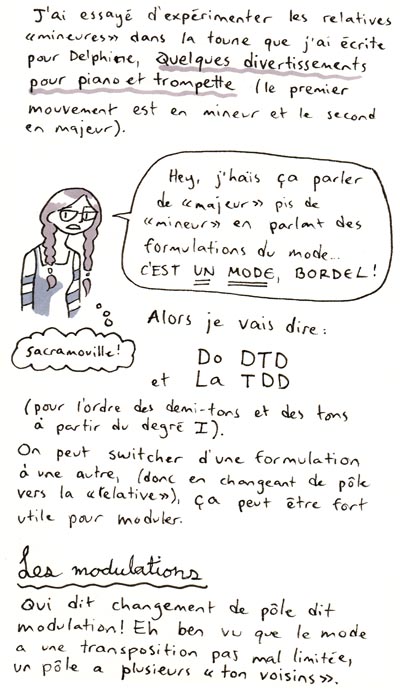 J'ai essayé d'expérimenter les relatives
«mineures» dans la toune que j'ai écrite
pour Delphine, Quelques divertissements
pour piano et trompette (le premier
mouvement est en mineur et le second
en majeur).
Hey, j'haïs ça parler
de «majeur» pis de
«mineur» en parlant des
formulations du mode...
C'EST UN MODE, BORDEL!
sacramouille!
Alors je vais dire:
Do DTD
et La TDD
(pour l'ordre des demi-tons et des tons
à partir du degré I).
On peut switcher d'une formulation
à une autre, (donc en changeant de pôle
vers la «relative»), ça peut être fort
utile pour moduler.
Les modulations
Qui dit changement de pôle dit
modulation! Eh ben vu que le mode
a une transposition pas mal limitée,
un pôle a plusieurs «ton voisins».